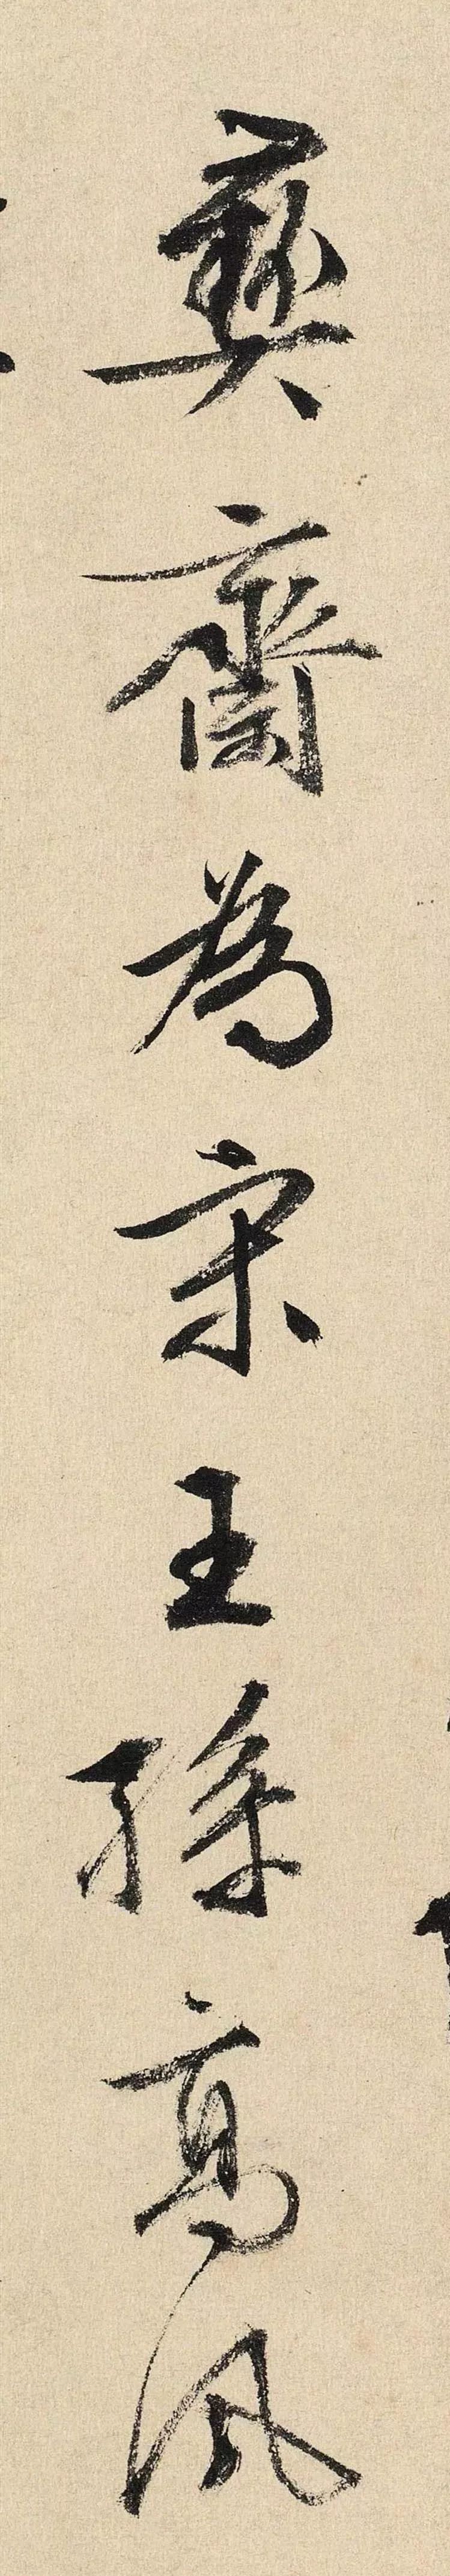 彝齋為宋王孫高風